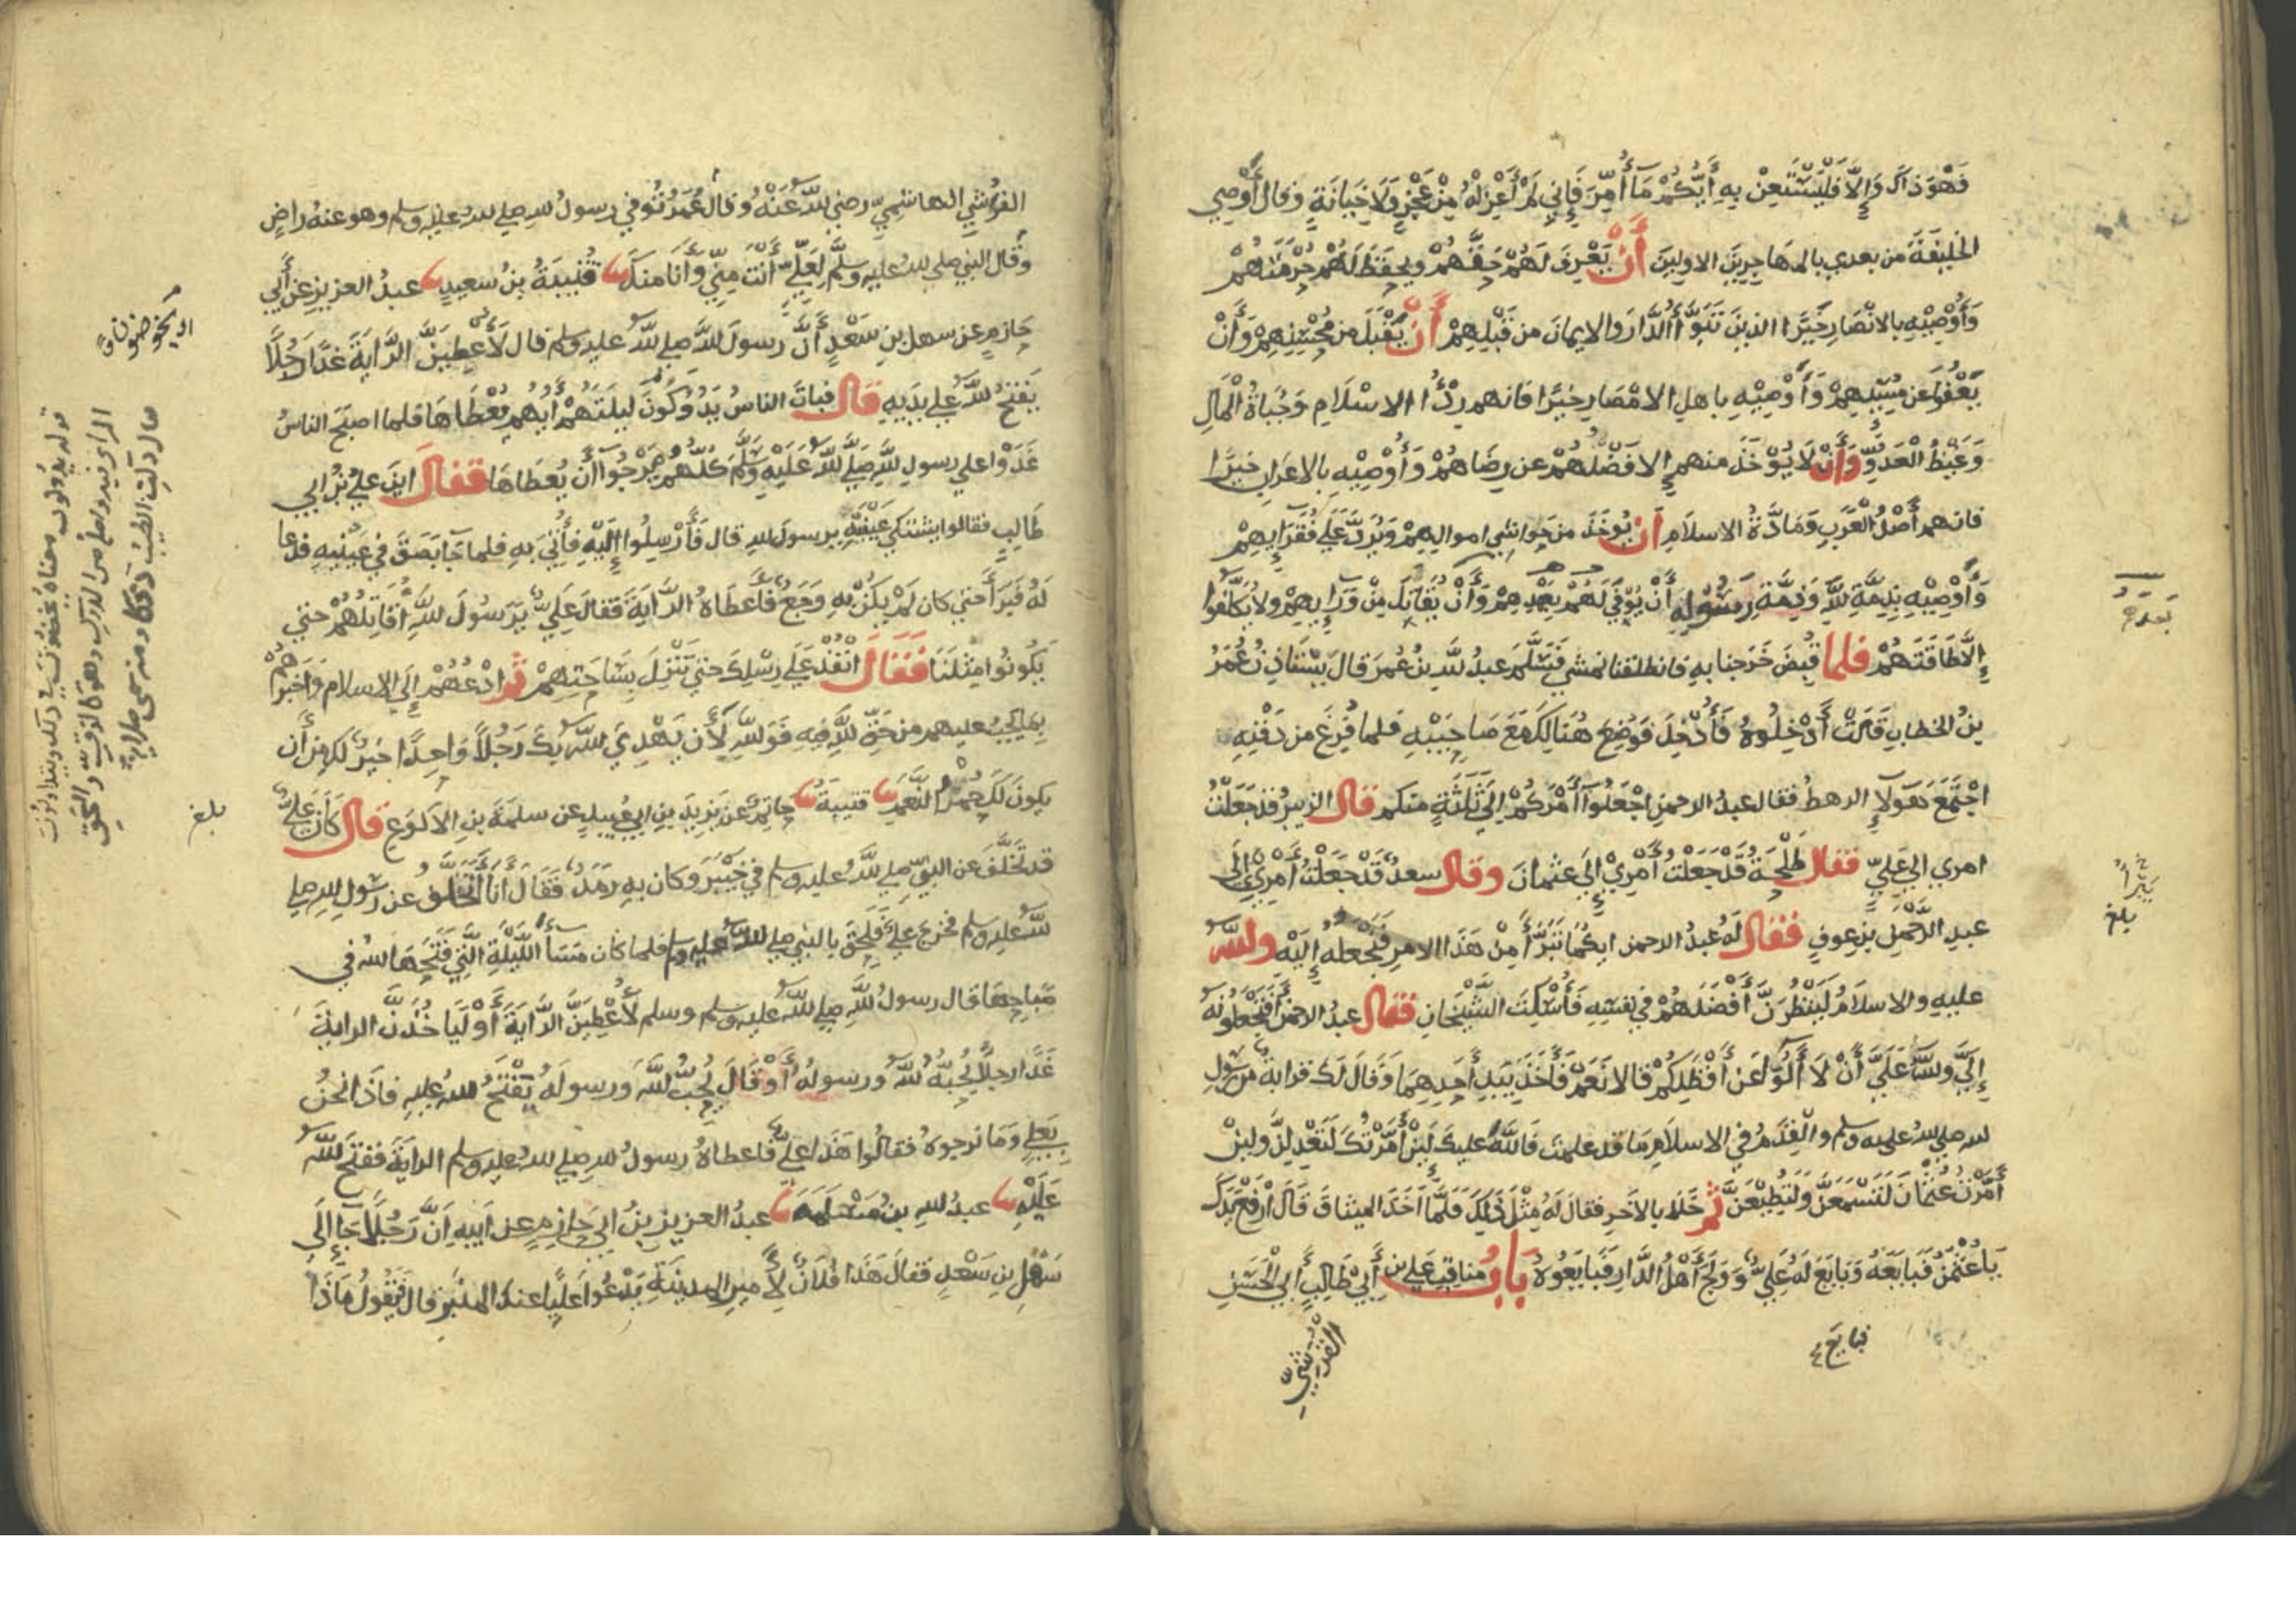 فَهُوَ ذَاكَ وَإِلَّا فَلْيَسْتَعِنْ بِهِ أَيُّكُمْ مَا أُمِّرَ فَإِنِّي لَمْ أَعْزِلْهُ مِنْ عَجْزٍ وَلَا خِيَانَةٍ وَقَالَ أُوصِي
الخليفَةَ من بعدي بالمهاجِرِينَ الاولينَ أَنْ يَعْرِفَ لَهُمْ حَقَّهُمْ ويحفَظَ لَهُمْ حُرْمَتَهُمْ
وَأُوْصِيْهِ بالانْصَارِ خَيْرًا الذينَ تَبَوَّأُ الدَّارَ والايمانَ من قَبْلِهِمْ أَنْ يُقْبَلَ من مُحْسِنِهِمْ وَأَنْ
يُعْفَى عَن مُسِيْئِهِمْ وَأُوْصِيْهِ باهلِ الامْصَارِ خيرًا فانهم رِدْءُ الاسْلَامِ وَجُبَاةُ الْمَالِ
وَغَيْظُ الْعَدُوِّ وَأَنْ لَا يُوْخَذَ منهم إلا فَضْلُهُمْ عن رِضَاهُمْ وَأُوْصِيْهِ بالاعرَابِ خَيْرًا
فانهم أَصْلُ الْعَرَبِ وَمَادَّةُ الاسلامِ أَنْ يُوخَذَ من حَوَاشِي اموالِهِمْ وَيُرَدَّ عَلَى فُقَرَايِهِمْ
وَأُوْصِيْهِ بِذِمَّةِ اللهِ وَذِمَّةِ رَسُوْلِهِ أَنْ يُوْفَى لَهُمْ بِعَهْدِهِمْ وَأَنْ يُقَاتَلَ مِنْ وَرَايِهِمْ ولا يُكَلَّفُوا
إِلَّا طَاقَتَهُمْ فلما قُبِضَ خَرَجنا بهِ فانطلقنا نمشي فَسَلَّمَ عبدُ اللهِ بنُ عُمَرَ قالَ يَسْتَاذِنُ عُمَرُ
بنُ الخطابِ قَالَتْ أَدْخِلُوهُ فَأُدْخِلَ فَوُضِعَ هُنَالِكَ مَعَ صَاحِبَيْهِ فلما فُرِغَ من دَفْنِهِ
اجْتَمَعَ هَؤلَاءِ الرهطُ فقال عبدُ الرحمنِ اجْعَلُوا أَمْرَكُمْ إِلَى ثَلَثَةٍ منكم قال الزبيرُ قد جَعَلْتُ
امري إلى عَلِيٍّ فقال طَلْحَةُ قَدْ جَعَلْتُ أَمْرِيْ إِلَى عثمانَ وقال سعدٌ قَدْ جَعَلْتُ أَمْرِيْ إِلَى
عبدِ الرَّحْمَنِ بنِ عوفٍ فقال لَهُ عبدُ الرحمن ايكما تَبَرَّأَ مِنْ هَذَا الامرِ فَنَجْعَلُهُ إِلَيْهِ واللهُ
عليهِ والاسلَامُ لَيَنْظُرَنَّ أَفْضَلَهُمْ في نفسِهِ فَأُسْكِتَ الشَّيْخَانِ فقال عبدُ الرحمن أَفَتَجْعَلُونَهُ
إِلَيَّ واللهُ عَلَيَّ أَنْ لَا أَلُوَ عَنْ أَفْضَلِكُمْ قالا نَعَمْ فَأَخَذَ بِيَدِ أَحَدِهِمَا وَقَالَ لَكَ قَرَابةٌ من رسولِ
اللهِ صلى اللهُ عليه وسلم والْقَدَمُ في الاسلامِ مَا قد علمتَ فَاللهُ عليكَ لَئِنْ أَمَّرْتُكَ لَتَعْدِلَنَّ ولئِنْ
أَمَّرْتُ عُثْمَانَ لَتَسْمَعَنَّ وَلَتُطِيْعَنَّ ثم خَلَا بالآخَرِ فقال لَهُ مِثْلَ ذَلِكَ فَلَمَّا أَخَذَ الميثاقَ قَالَ ارْفَعْ يَدَكَ
يَا عُثْمَنُ فَبَايَعَهُ وَبَايَعَ لَهُ عَلِيٌّ وَوَلَجَ أَهْلُ الدَّارِ فَبَايَعُوهُ بَابُ مناقبِ علي بنِ أَبِيْ طَالِبٍ أَبِي الْحَسَنِ
القُرَشِيِّ
فبايع
يَتَبَرَّأُ
بلغ
القُرَشِيِّ الهاشِمِيِّ رضي اللهُ عَنْهُ وَقَالَ عُمَرُ تُوُفِّيَ رسولُ اللهِ صلى اللهُ عليه وسلم وهو عنهُ راضٍ
وقال النبي صلى اللهُ عليهِ وسلَّمَ لِعَلِيٍّ أَنْتَ مِنِّي وَأَنَا مِنْكَ قُتَيْبَةُ بنُ سَعِيدٍ عبدُ العزيزِ عن أبي
حازمٍ عن سهلِ بنِ سَعْدٍ أَنَّ رسولَ اللهِ صلى اللهُ عليه وسلم قال لَأُعْطِيَنَّ الرَّايَةَ غَدًا رَجُلًا
يَفْتَحُ اللهُ على يَدَيهِ قال فباتَ الناسُ يَدُوكُونَ لَيلَتَهُمْ أَيُّهُم يُعْطَاهَا فلما اصبَحَ الناسُ
غَدَوْا على رسولِ اللهِ صَلَّى اللهُ عَلَيْهِ وَسَلَّمَ كُلُّهُمْ يَرْجُوا أَن يُعْطَاهَا فقال اينَ عليُّ بْنُ ابي
طَالِبٍ فقالوا يشتكي عَيْنَيْهِ يرسولَ اللهِ قال فَأَرْسِلُوا إِلَيْهِ فَأُتِيَ بهِ فلما جَا بَصَقَ في عَيْنَيهِ فدعا
لَهُ فَبَرَأَ حَتى كان لَمْ يَكُنْ بِهِ وَجَعٌ فأَعْطَاهُ الرَّايَةَ فقال عَلِيٌّ يَرَسُولَ اللهِ أُقَاتِلُهُمْ حتى
يَكُونُوا مِثْلَنَا فَقَالَ انْفُذْ عَلَى رِسْلِكَ حتى تَنْزِلَ بِسَاحَتِهِمْ ثم ادْعُهُمْ إِلَى الاسلام وَأَخْبِرْهُمْ
بما يَجِبُ عليهم من حَقِّ اللهِ فِيهِ فَوَاللهِ لَأَن يَهْدِيَ اللهُ بِكَ رَجُلًا وَاحِدًا خيرٌ لك من أن
يكونَ لك حُمْرُ النَّعَمِ قتيبةُ حاتِمٌ عن يَزِيدَ بنِ ابي عُبيدٍ عن سلمَةَ بنِ الاكوَعِ قال كَانَ عَلِيٌّ
قد تَخَلَّفَ عن النبيِّ صلى اللهُ عليه وسلم في خَيْبَرَ وكان بهِ رَمَدٌ فَقَالَ أَنَا أَتَخَلَّفُ عن رسولِ اللهِ صلى
اللهُ عليه وسلم فخرج عَلِيٌّ فَلَحِقَ بالنبي صلى اللهُ عليه وسلم فلما كان مَسَاُ اللَّيْلَةِ الَّتِي فَتَحَهَا اللهُ في
صَباحِهَا قال رسولُ اللهِ صلى اللهُ عليه وسلم وسلم لَأُعْطِيَنَّ الرَّايَةَ أَوْ لَيَاخُذَنَّ الرايةَ
غَدًا رجلٌ يُحِبُّهُ اللهُ ورسولُهُ أَوْ قَالَ يُحِبُّ اللهَ وَرسولَهُ يَفْتَحُ اللهُ عليهِ فاذَا نحنُ
بِعلي وَمَا نرجوهُ فقالوا هَذَا عليٌّ فاعطاهُ رسولُ اللهِ صلى اللهُ عليه وسلم الرايَةَ ففتَحَ اللهُ
عَلَيْهِ عبدُ اللهِ بنُ مَسْلَمَةَ عبدُ العزيزِ بنُ ابي حازمٍ عن ابيهِ أَنَّ رَجُلًا جَا إِلَى
سَهْلِ بنِ سَعْدٍ فَقَالَ هَذَا فُلَانٌ لِأَميرِ المدينَةِ يَدْعُوا عَلِيًّا عند المنْبَرِ قال فَيَقُولُ مَاذَا
بلغ